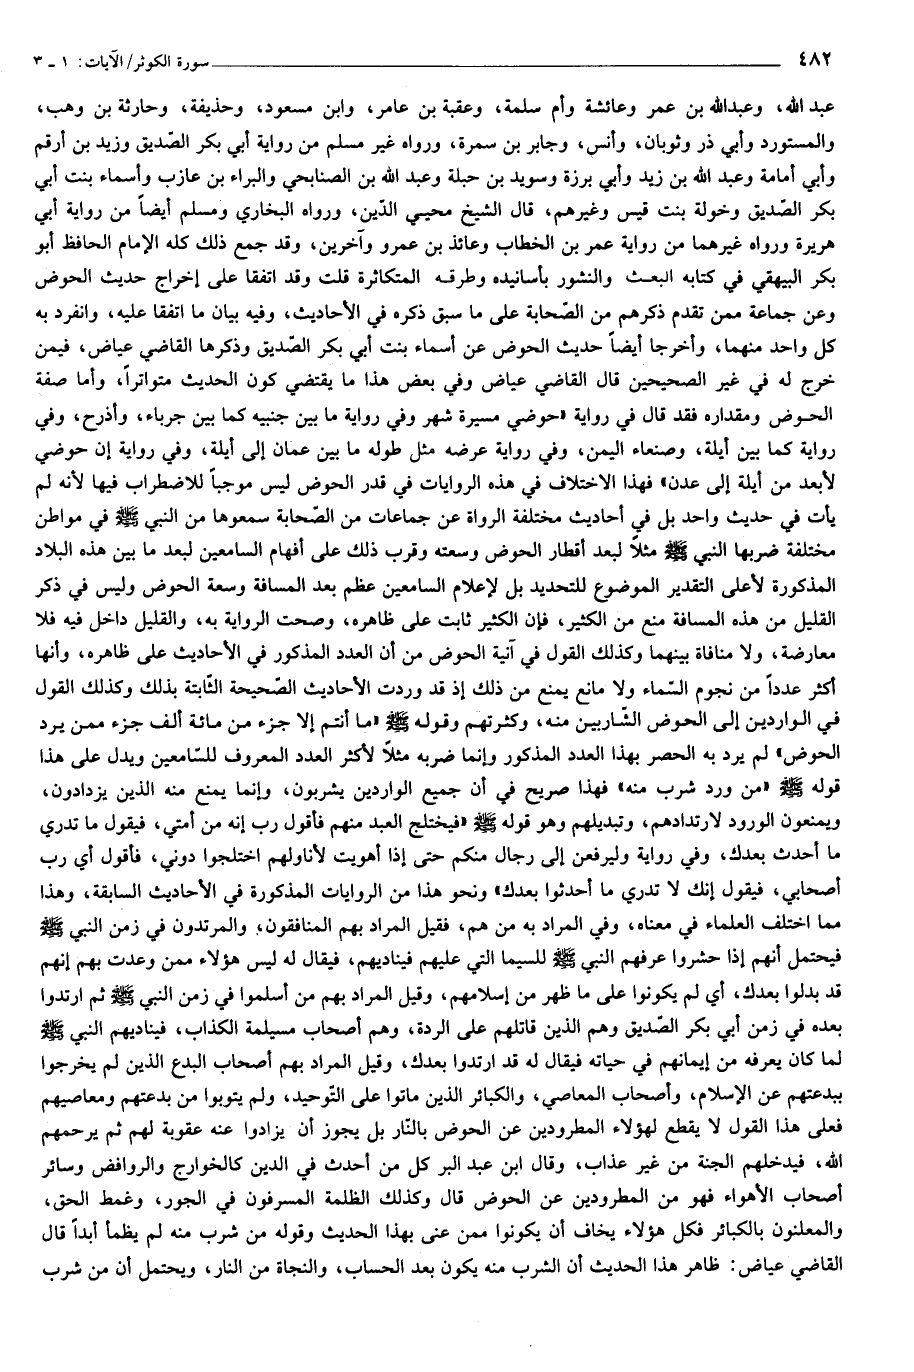 ٤٨٢ سورة الكوثر/ الآيات: ١ ـ ٣
عبد الله، وعبدالله بن عمر وعائشة وأم سلمة، وعقبة بن عامر، وابن مسعود، وحذيفة، وحارثة بن وهب،
والمستورد وأبي ذر وثوبان، وأنس، وجابر بن سمرة، ورواه غير مسلم من رواية أبي بكر الصّديق وزيد بن أرقم
وأبي أمامة وعبد الله بن زيد وأبي برزة وسويد بن حبلة وعبد الله بن الصنابحي والبراء بن عازب وأسماء بنت أبي
بكر الصّديق وخولة بنت قيس وغيرهم، قال الشيخ محيي الدّين، ورواه البخاري ومسلم أيضاً من رواية أبي
هريرة ورواه غيرهما من رواية عمر بن الخطاب وعائذ بن عمرو وآخرين، وقد جمع ذلك كله الإمام الحافظ أبو
بكر البيهقي في كتابه البعث والنشور بأسانيده وطرقه المتكاثرة قلت وقد اتفقا على إخراج حديث الحوض
وعن جماعة ممن تقدم ذكرهم من الصّحابة على ما سبق ذكره في الأحاديث، وفيه بيان ما اتفقا عليه، وانفرد به
كل واحد منهما، وأخرجا أيضاً حديث الحوض عن أسماء بنت أبي بكر الصّديق وذكرها القاضي عياض، فيمن
خرج له في غير الصحيحين قال القاضي عياض وفي بعض هذا ما يقتضي كون الحديث متواتراً، وأما صفة
الحوض ومقداره فقد قال في رواية «حوضي مسيرة شهر وفي رواية ما بين جنبيه كما بين جرباء، وأذرح، وفي
رواية كما بين أيلة، وصنعاء اليمن، وفي رواية عرضه مثل طوله ما بين عمان إلى أيلة، وفي رواية إن حوضي
لأبعد من أيلة إلى عدن» فهذا الاختلاف في هذه الروايات في قدر الحوض ليس موجباً للاضطراب فيها لأنه لم
يأت في حديث واحد بل في أحاديث مختلفة الرواة عن جماعات من الصّحابة سمعوها من النبي ﷺ في مواطن
مختلفة ضربها النبي ﷺ مثلاً لبعد أقطار الحوض وسعته وقرب ذلك على أفهام السامعين لبعد ما بين هذه البلاد
المذكورة لأعلى التقدير الموضوع للتحديد بل لإعلام السامعين عظم بعد المسافة وسعة الحوض وليس في ذكر
القليل من هذه المسافة منع من الكثير، فإن الكثير ثابت على ظاهره، وصحت الرواية به، والقليل داخل فيه فلا
معارضة، ولا منافاة بينهما وكذلك القول في آنية الحوض من أن العدد المذكور في الأحاديث على ظاهره، وأنها
أكثر عدداً من نجوم السّماء ولا مانع يمنع من ذلك إذ قد وردت الأحاديث الصّحيحة الثّابتة بذلك وكذلك القول
في الواردين إلى الحوض الشّاربين منه، وكثرتهم وقوله ﷺ «ما أنتم إلا جزء من مائة ألف جزء ممن يرد
الحوض» لم يرد به الحصر بهذا العدد المذكور وإنما ضربه مثلاً لأكثر العدد المعروف للسّامعين ويدل على هذا
قوله ﷺ «من ورد شرب منه» فهذا صريح في أن جميع الواردين يشربون، وإنما يمنع منه الذين يزدادون،
ويمنعون الورود لارتدادهم، وتبديلهم وهو قوله ﷺ «فيختلج العبد منهم فأقول رب إنه من أمتي، فيقول ما تدري
ما أحدث بعدك، وفي رواية وليرفعن إلى رجال منكم حتى إذا أهويت لأناولهم اختلجوا دوني، فأقول أي رب
أصحابي، فيقول إنك لا تدري ما أحدثوا بعدك» ونحو هذا من الروايات المذكورة في الأحاديث السابقة، وهذا
مما اختلف العلماء في معناه، وفي المراد به من هم، فقيل المراد بهم المنافقون، والمرتدون في زمن النبي ﷺ
فيحتمل أنهم إذا حشروا عرفهم النبي ﷺ للسيما التي عليهم فيناديهم، فيقال له ليس هؤلاء ممن وعدت بهم إنهم
قد بدلوا بعدك، أي لم يكونوا على ما ظهر من إسلامهم، وقيل المراد بهم من أسلموا في زمن النبي ﷺ ثم ارتدوا
بعده في زمن أبي بكر الصّديق وهم الذين قاتلهم على الردة، وهم أصحاب مسيلمة الكذاب، فيناديهم النبي ﷺ
لما كان يعرفه من إيمانهم في حياته فيقال له قد ارتدوا بعدك، وقيل المراد بهم أصحاب البدع الذين لم يخرجوا
ببدعتهم عن الإسلام، وأصحاب المعاصي، والكبائر الذين ماتوا على التّوحيد، ولم يتوبوا من بدعتهم ومعاصيهم
فعلى هذا القول لا يقطع لهؤلاء المطرودين عن الحوض بالنّار بل يجوز أن يزادوا عنه عقوبة لهم ثم يرحمهم
الله، فيدخلهم الجنة من غير عذاب، وقال ابن عبد البر كل من أحدث في الدين كالخوارج والروافض وسائر
أصحاب الأهواء فهو من المطرودين عن الحوض قال وكذلك الظلمة المسرفون في الجور، وغمط الحق،
والمعلنون بالكبائر فكل هؤلاء يخاف أن يكونوا ممن عنى بهذا الحديث وقوله من شرب منه لم يظمأ أبداً قال
القاضي عياض: ظاهر هذا الحديث أن الشرب منه يكون بعد الحساب، والنجاة من النار، ويحتمل أن من شرب